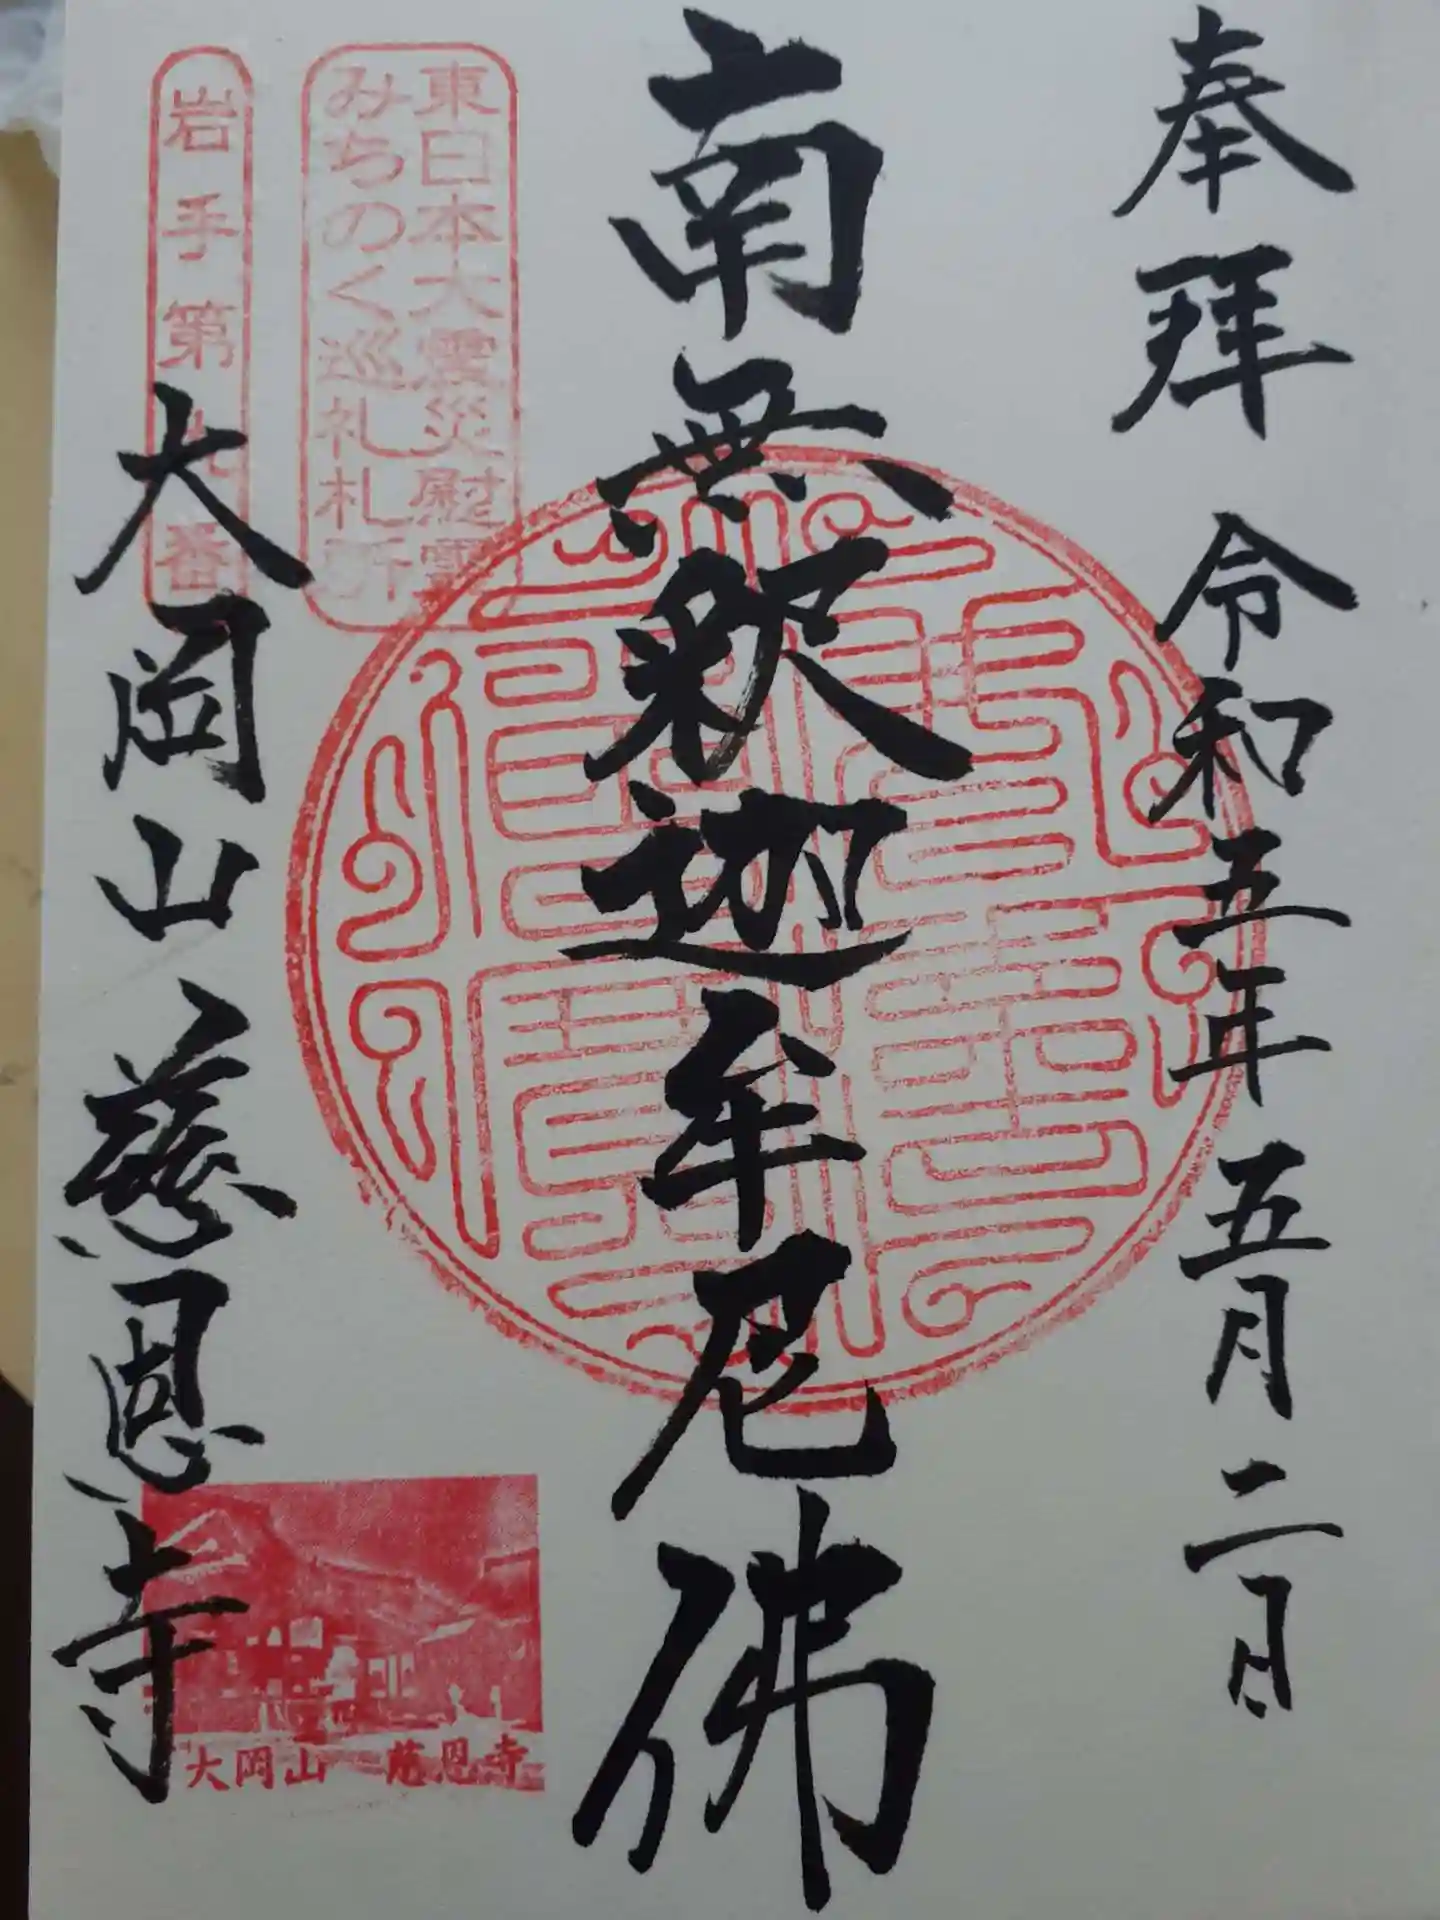 奉拝 令和五年五月二日
南無釈迦牟尼佛
東日本大震災慰霊
みちのく巡礼札所
岩手第九番
大岡山慈恩寺
大岡山 慈恩寺